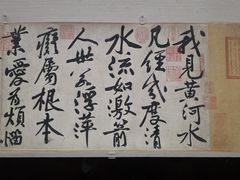 我見黃河水
凡經幾度清
水流如激箭
人世若浮萍
癡屬根本
業愛為煩惱